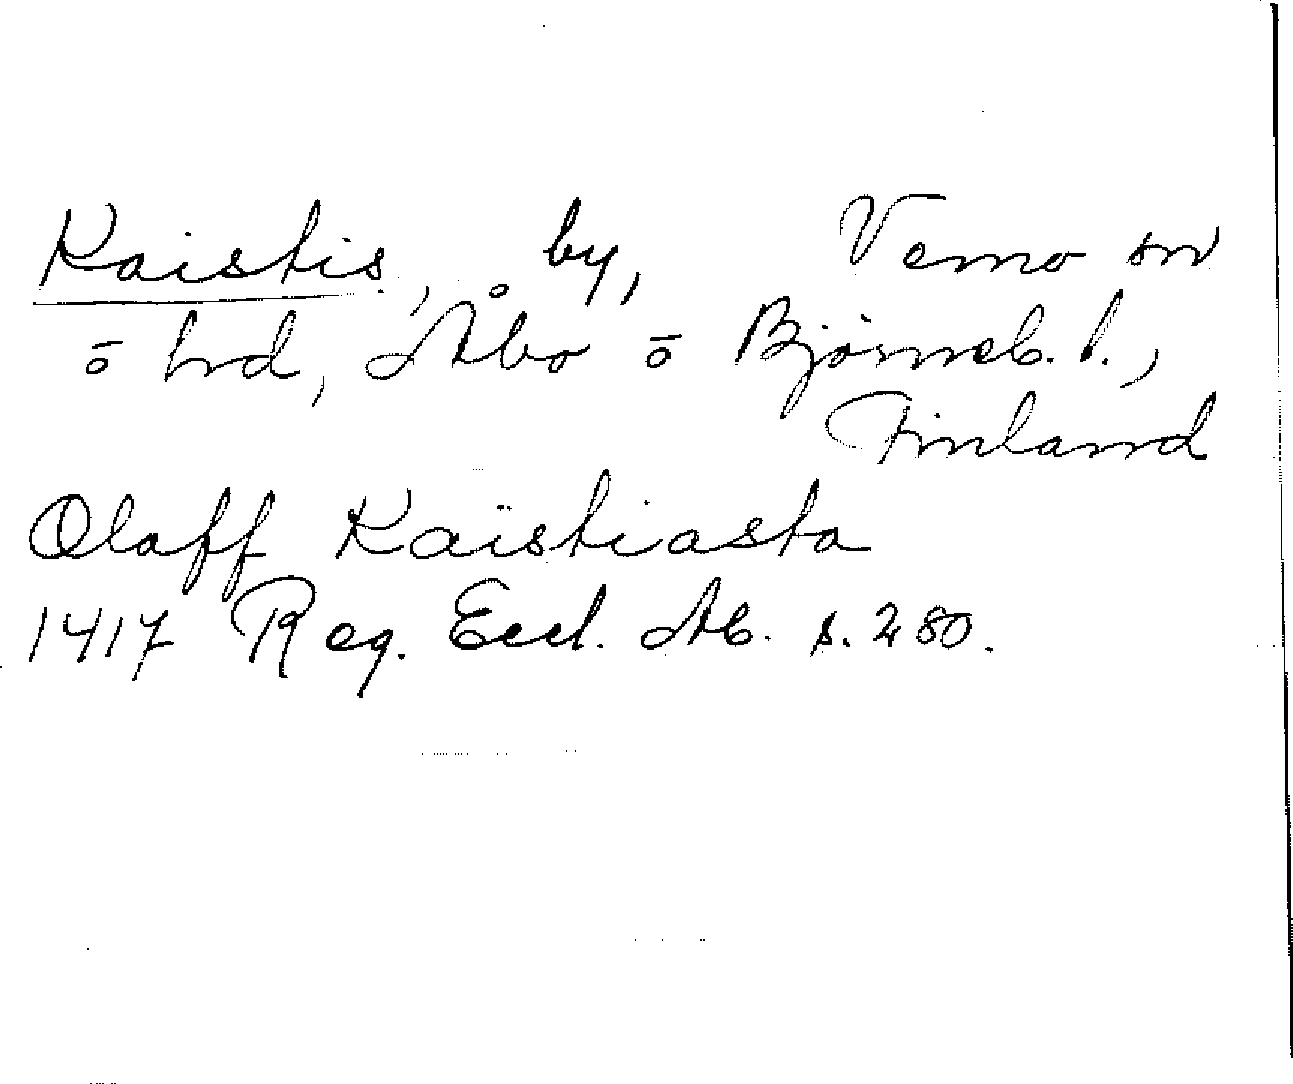 Kaistis, by, Vemo sn
o hd, Åbo o Björneb. l.,
Finland
Olaff Kaistiasta
1417 Reg. Eccl. Ab. s. 280.